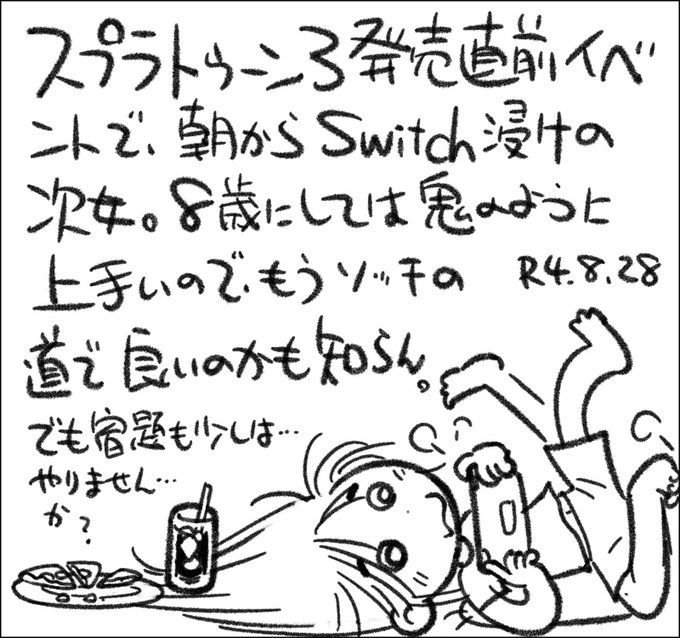 スプラトゥーン3発売直前イベ
ントで、朝からSwitch浸けの
次女。8歳にしては鬼のように
上手いので、もうソッチの
R4.8.28
道で良いのかも知らん。
でも宿題も少しは…
やりません…
か?